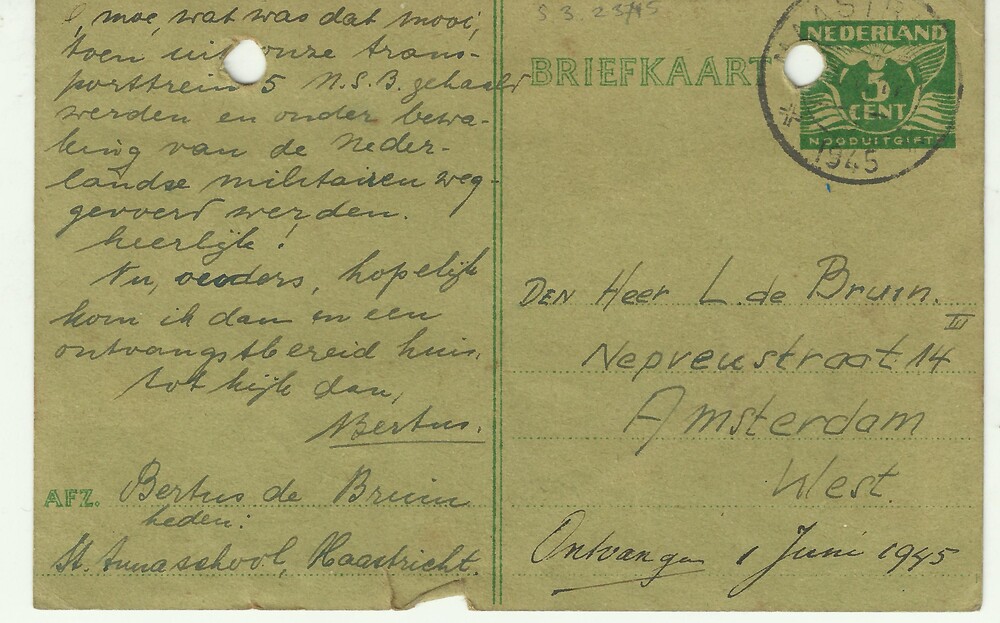 moe, wat was dat mooi,
toen uit onze trans-
porttrein 5 N.S.B. gehaald
werden en onder bewa-
king van de Neder-
landse militairen weg-
gevoerd werden.
heerlijk!
Nu, ouders, hopelijk
kom ik dan in een
ontvangstbereid huis.
tot kijk dan,
Bertus.
AFZ. Bertus de Bruin
heden:
St. Annaschool, Maastricht.
BRIEFKAART
NEDERLAND
5
CENT
NOODUITGIFTE
1945
DEN Heer L. de Bruin.
Nepveustraat 14 III
Amsterdam
West.
Ontvangen 1 Juni 1945